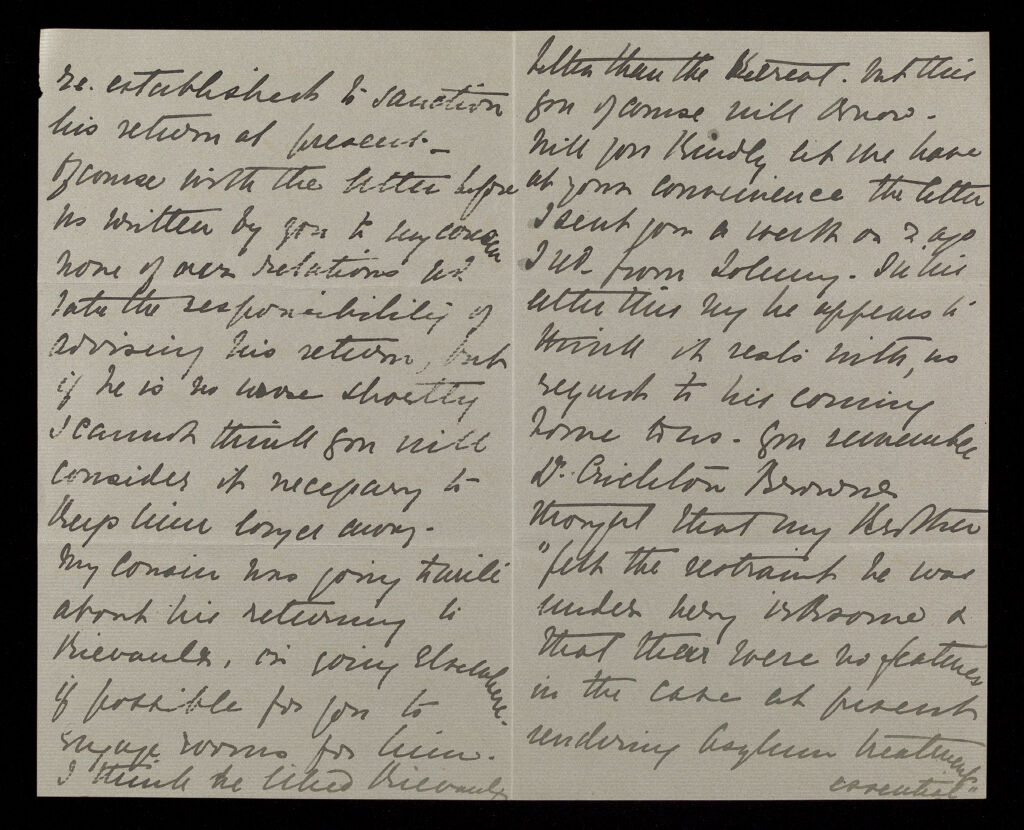 re-established to sanction
his return at present -
Of course with the letter before
us written by you to my cousin
none of our relations wd
take the responsibility of
advising his return, but
if he is no worse shortly
I cannot think you will
consider it necessary to
keep him longer away -
My Cousin was going to write
about his returning to
Rievaulx, or going elsewhere -
if possible for you to
engage rooms for him -
I think he liked Rievaulx
better than the Retreat. but this
you of course will know -
Will you kindly let me have
at your convenience the letter
I sent you a week or 2 ago
from Johnny - In his
letter this mg he appears to
think it rests with us
regards to his coming
home to us - You remember
Dr Crichton Browne
thought that my Brother
"felt the restraint he was
under very irksome &
that there were no features
in the case at present
rendering Asylum treatment
essential"